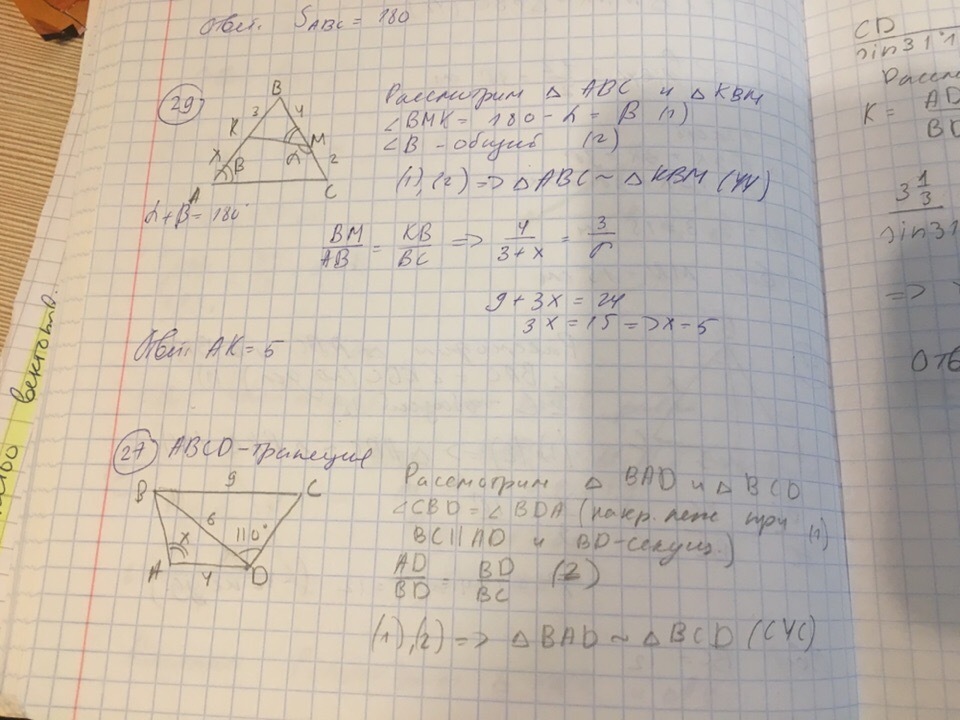 Ответ. S ABC = 180
29
B
3
4
K
M
α
x
β
2
A
C
α + β = 180°
Рассмотрим △ ABC и △ KBM
∠BMK = 180 - α = β (1)
∠B - общий (2)
(1), (2) => △ABC ~ △KBM (УУ)
BM/AB = KB/BC => 4/3+x = 3/6
9 + 3x = 24
3x = 15 => x = 5
Ответ. AK = 5
27 ABCD - трапеция
B
9
C
6
x
110°
A
4
D
Рассмотрим △ BAD и △ BCD
∠CBD = ∠BDA (накр. леж при (1)
BC || AD и BD - секущ.)
AD/BD = BD/BC (2)
(1), (2) => △ BAD ~ △ BCD (СУС)
вектотв.
CD
sin31
K = AD
BD
3 1/3
sin31
=>
Отв